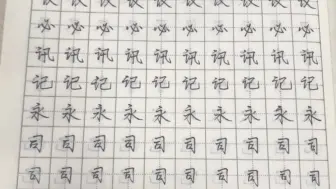 必必必必必必必必必必
讯讯讯讯讯讯讯讯讯讯
记记记记记记记记记记
永永永永永永永永永永
司司司司司司司司司司
司司司司司司司司司司